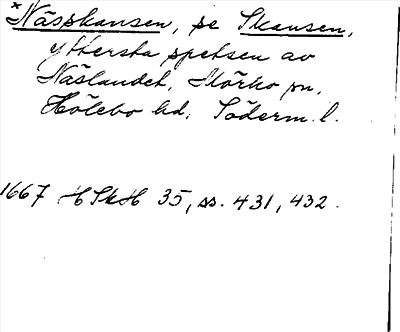 *Nässkansen, se Skansen,
yttersta spetsen av
Näslandet, Mörkö sn,
Hölebo hd, Söderm. l.
1667 HSkH 35, ss. 431, 432.